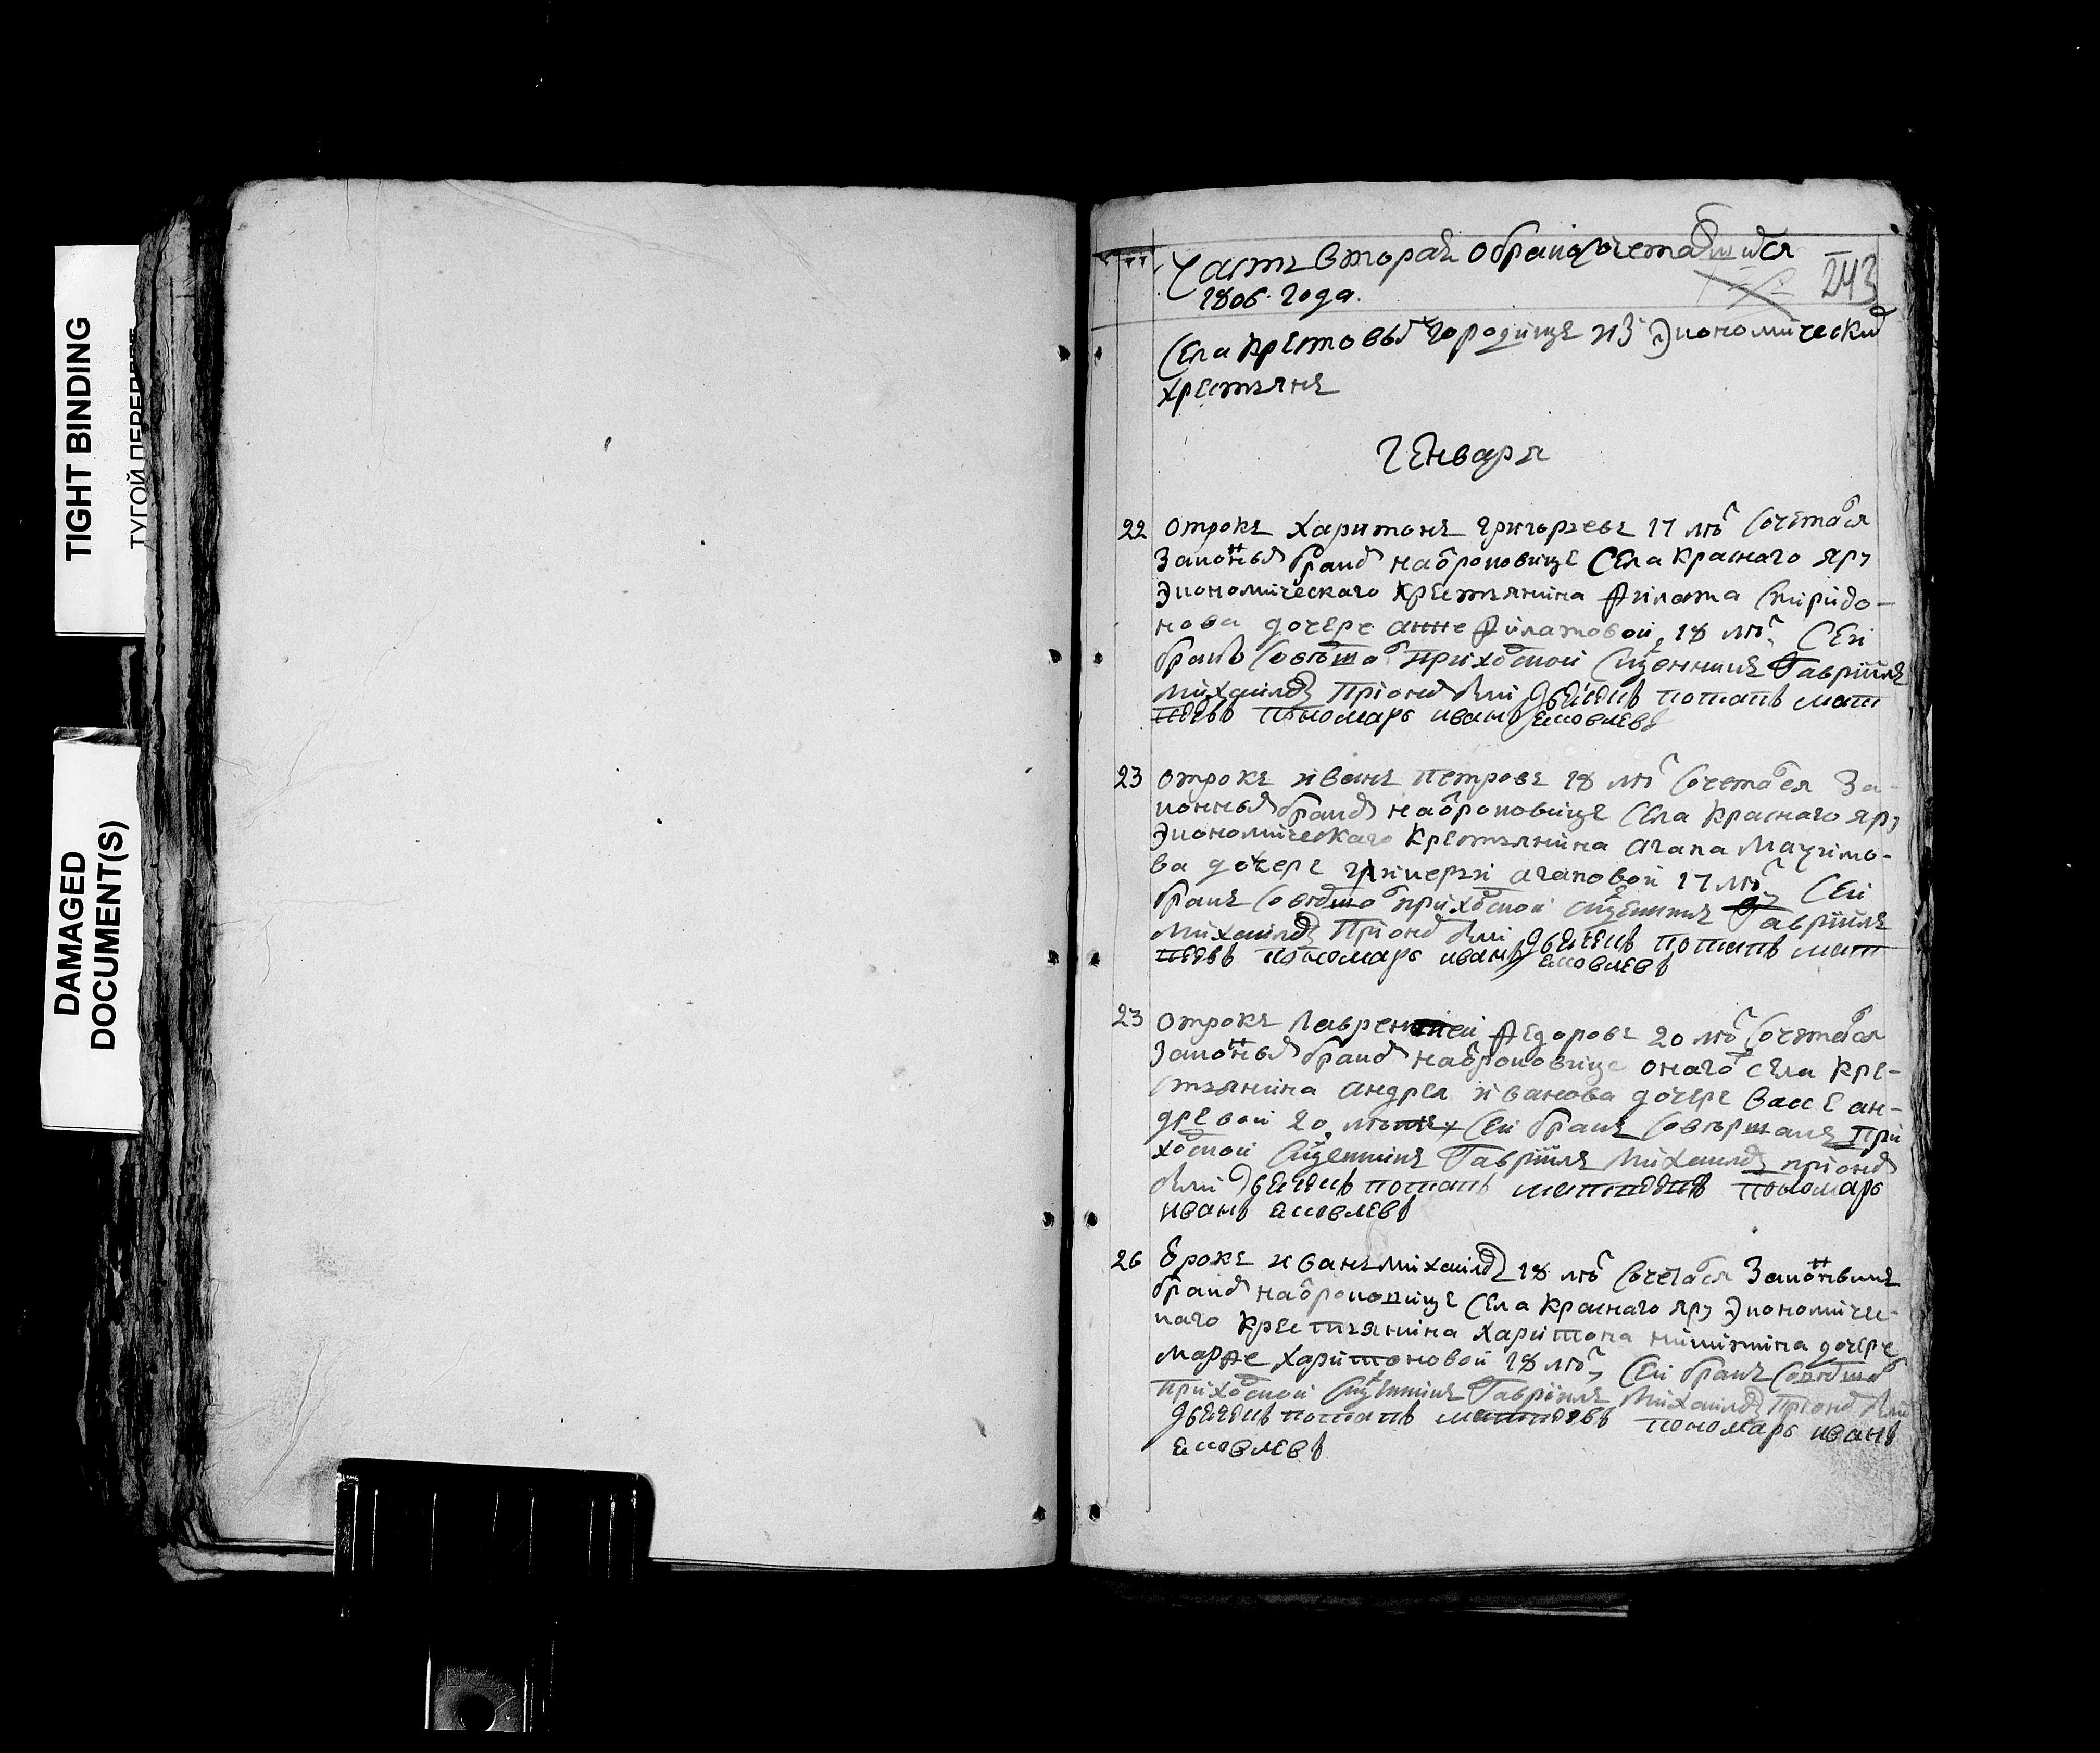 TIGHT BINDING
ТУГОЙ ПЕРЕПЛЕТ
DAMAGED
DOCUMENT(S)
Часть вторая о бракосочетавшихся
243
1806 года.
Села Крестовых городище из экономических
хрестьянъ
Генваря
22 отрокъ Харитонъ Григорьевъ 17 летъ сочетався
законнымъ бракомъ на отроковице села Краснаго Яру
экономическаго крестьянина Филата Спиридо-
нова дочере Анне Филатовой, 18 летъ, Сей
бракъ совершавъ приходской священникъ Гавриилъ
Михаиловъ При ономъ были дьячекъ потапъ мат
феевъ пономарь иванъ яковлевъ
23 отрокъ Иванъ Петровъ 18 летъ сочетався за-
коннымъ бракомъ на отроковице села Краснаго Яру
экономическаго крестьянина Агапа Маѯимо-
ва дочере Гликерьи Агаповой 17 летъ, Сей
бракъ совершавъ приходской священникъ Гавриилъ
Михаиловъ При ономъ были дьячекъ потапъ мат
феевъ пономарь иванъ яковлевъ
23 отрокъ Лаврентей Федоровъ 20 летъ сочетався
законнымъ бракомъ на отроковице онаго села кре-
стьянина Андрея Иванова дочере Вассе Ан-
древой 20, летъ, Сей бракъ совершалъ при
ходской священникъ Гавриилъ Михаиловъ при ономъ
были дьячекъ потапъ матфеевъ пономарь
иванъ яковлевъ
26 Отрокъ Иванъ Михаиловъ 18 летъ сочетався законнымъ
бракомъ на отроковице села Краснаго Яру экономичес-
каго крестьянина Харитона Никитина дочере
Марфе Харитоновой 18 летъ, Сей бракъ совершавъ
приходской священникъ Гавриилъ Михаиловъ при ономъ были
дьячекъ потапъ матфеевъ пономарь иванъ
яковлевъ